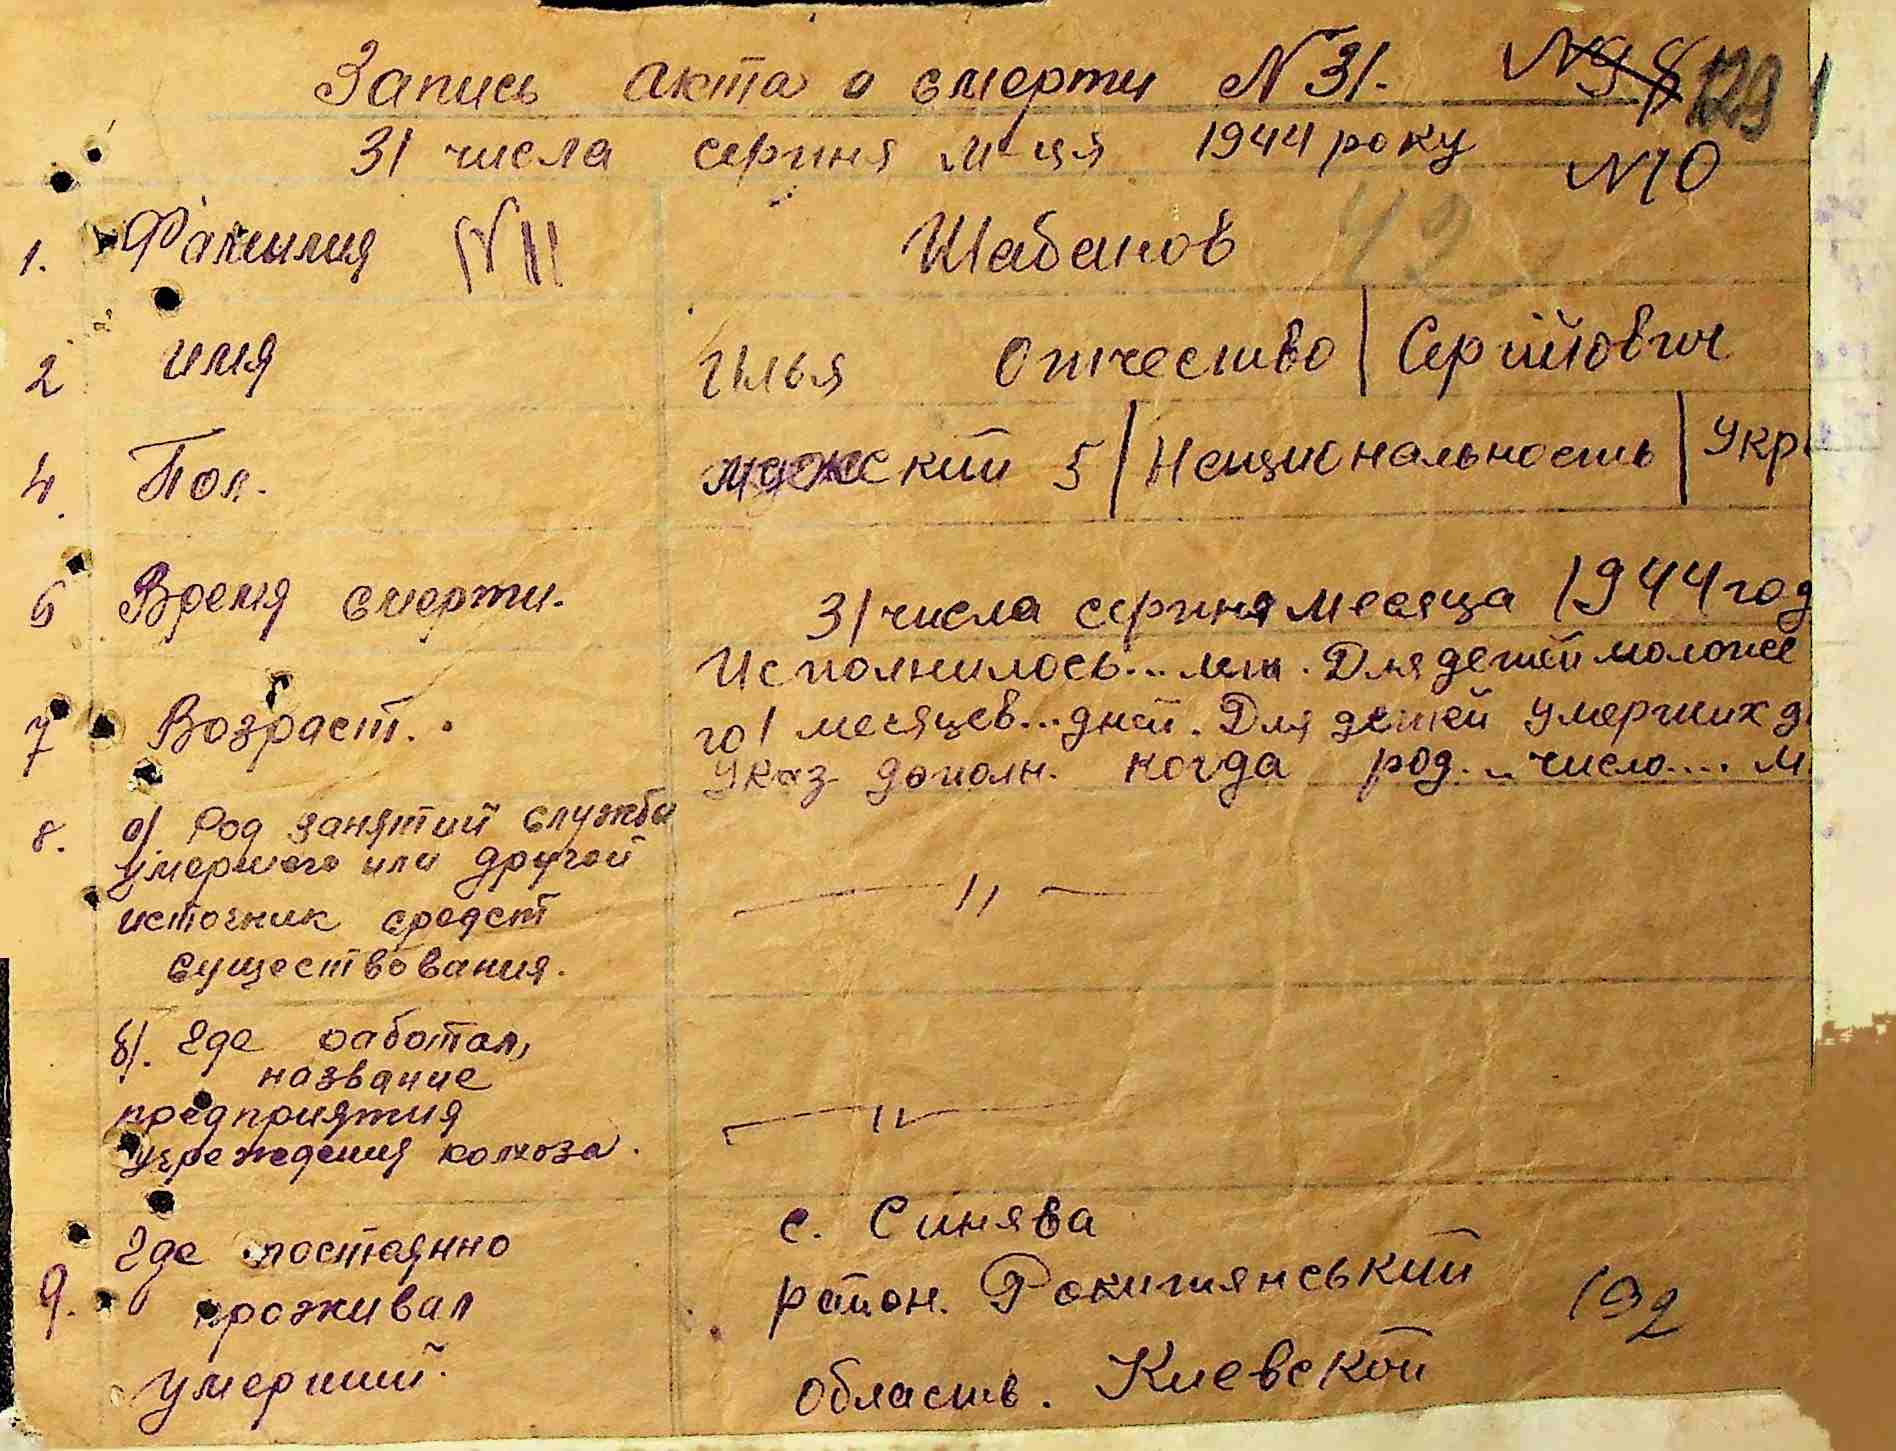 Запись акта о смерти N 31. N 98 129
31 числа серпня м-ця 1944 року
N 10
1. Фамилия N 11 Шабанов 42
2 имя Илья Отчество | Серійович
4. Пол. мужский 5 | Национальность | Укр
6 Время смерти. 31 числа серпня месяца 1944 год
7 Возраст. Исполнилось... лет. Для детей моложе
го 1 месяцев... дней. Для детей умерших д
указ дополн. когда род... число.... м
8. а) Род занятий служба
умершего или другой
источник средст
существования.
— " —
б). Где работал,
название
предприятия
учреждения колхоза.
— " —
9. Где постоянно
проживал
умерший.
с. Синява
район. Рокитянський 192
область. Киевской